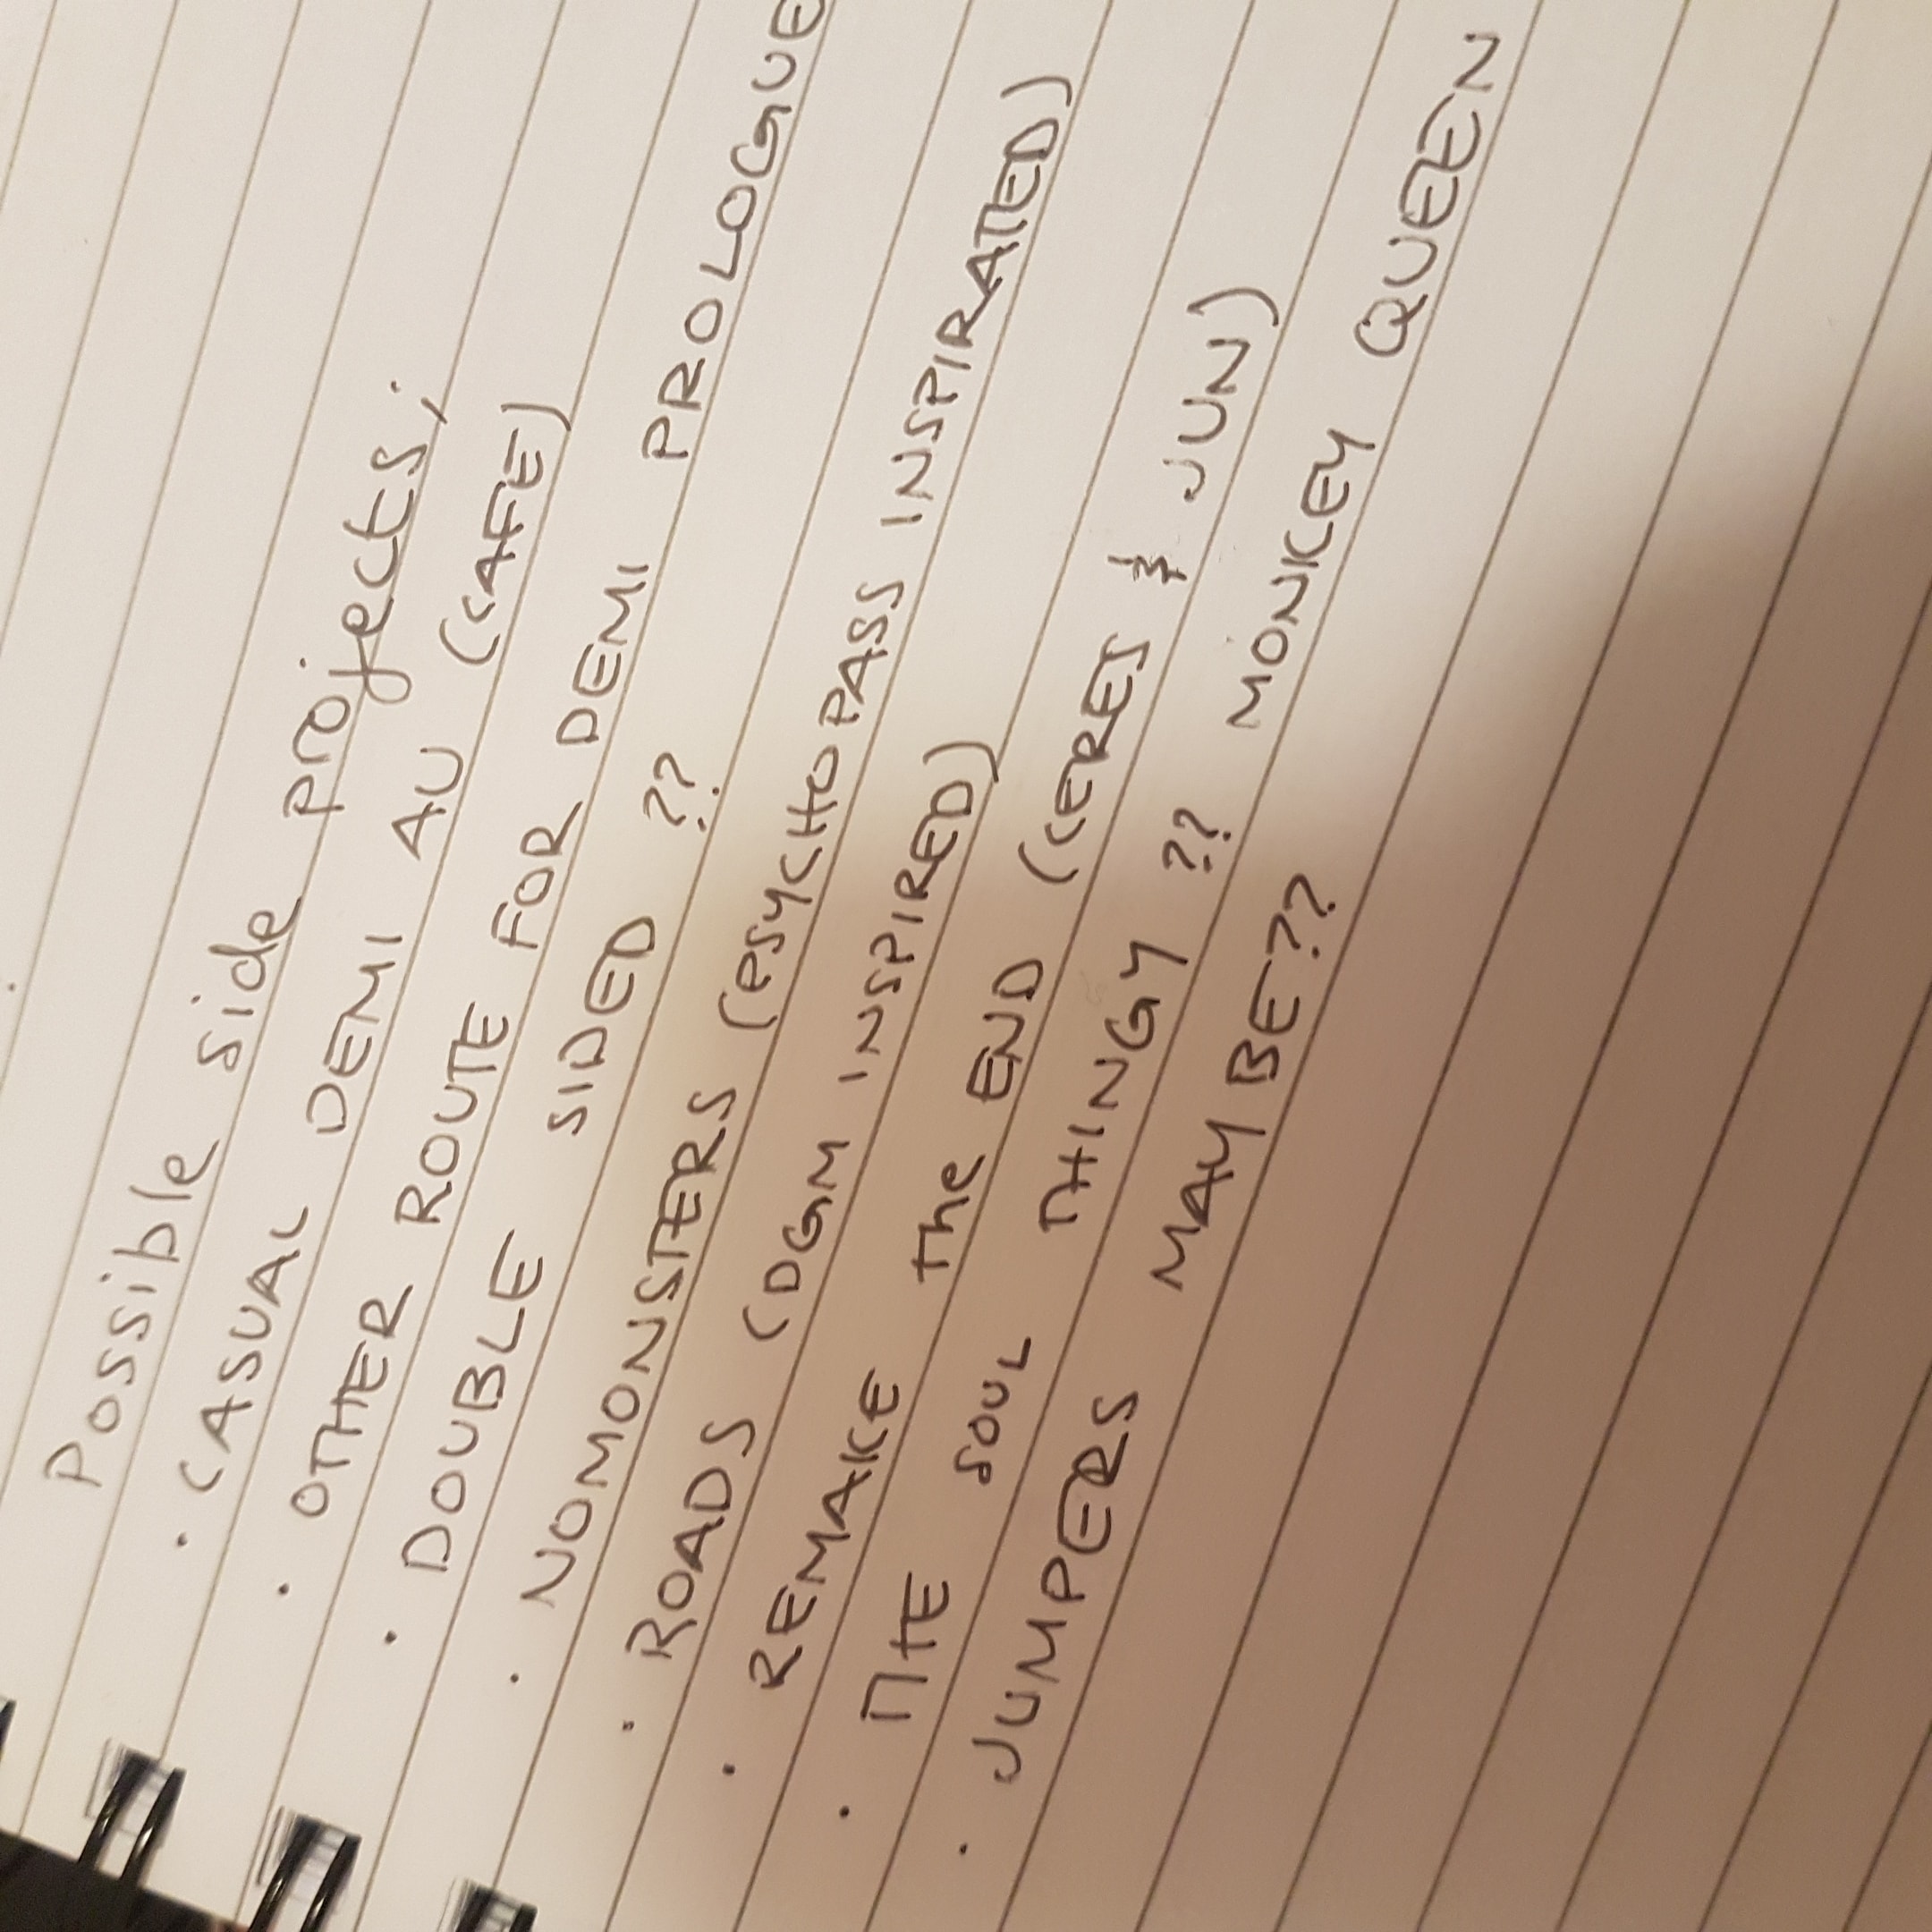 Possible side projects;
• CASUAL DEMI AU (CAFE)
• OTHER ROUTE FOR DEMI PROLOGUE
• DOUBLE SIDED ??
• NOMONSTERS (PSYCHOPASS INSPIRATED)
• ROADS (DGM INSPIRED)
• REMAKE the END (CERES & JUN)
• THE SOUL THINGY ?? MONKEY QUEEN
• JUMPERS MAYBE??